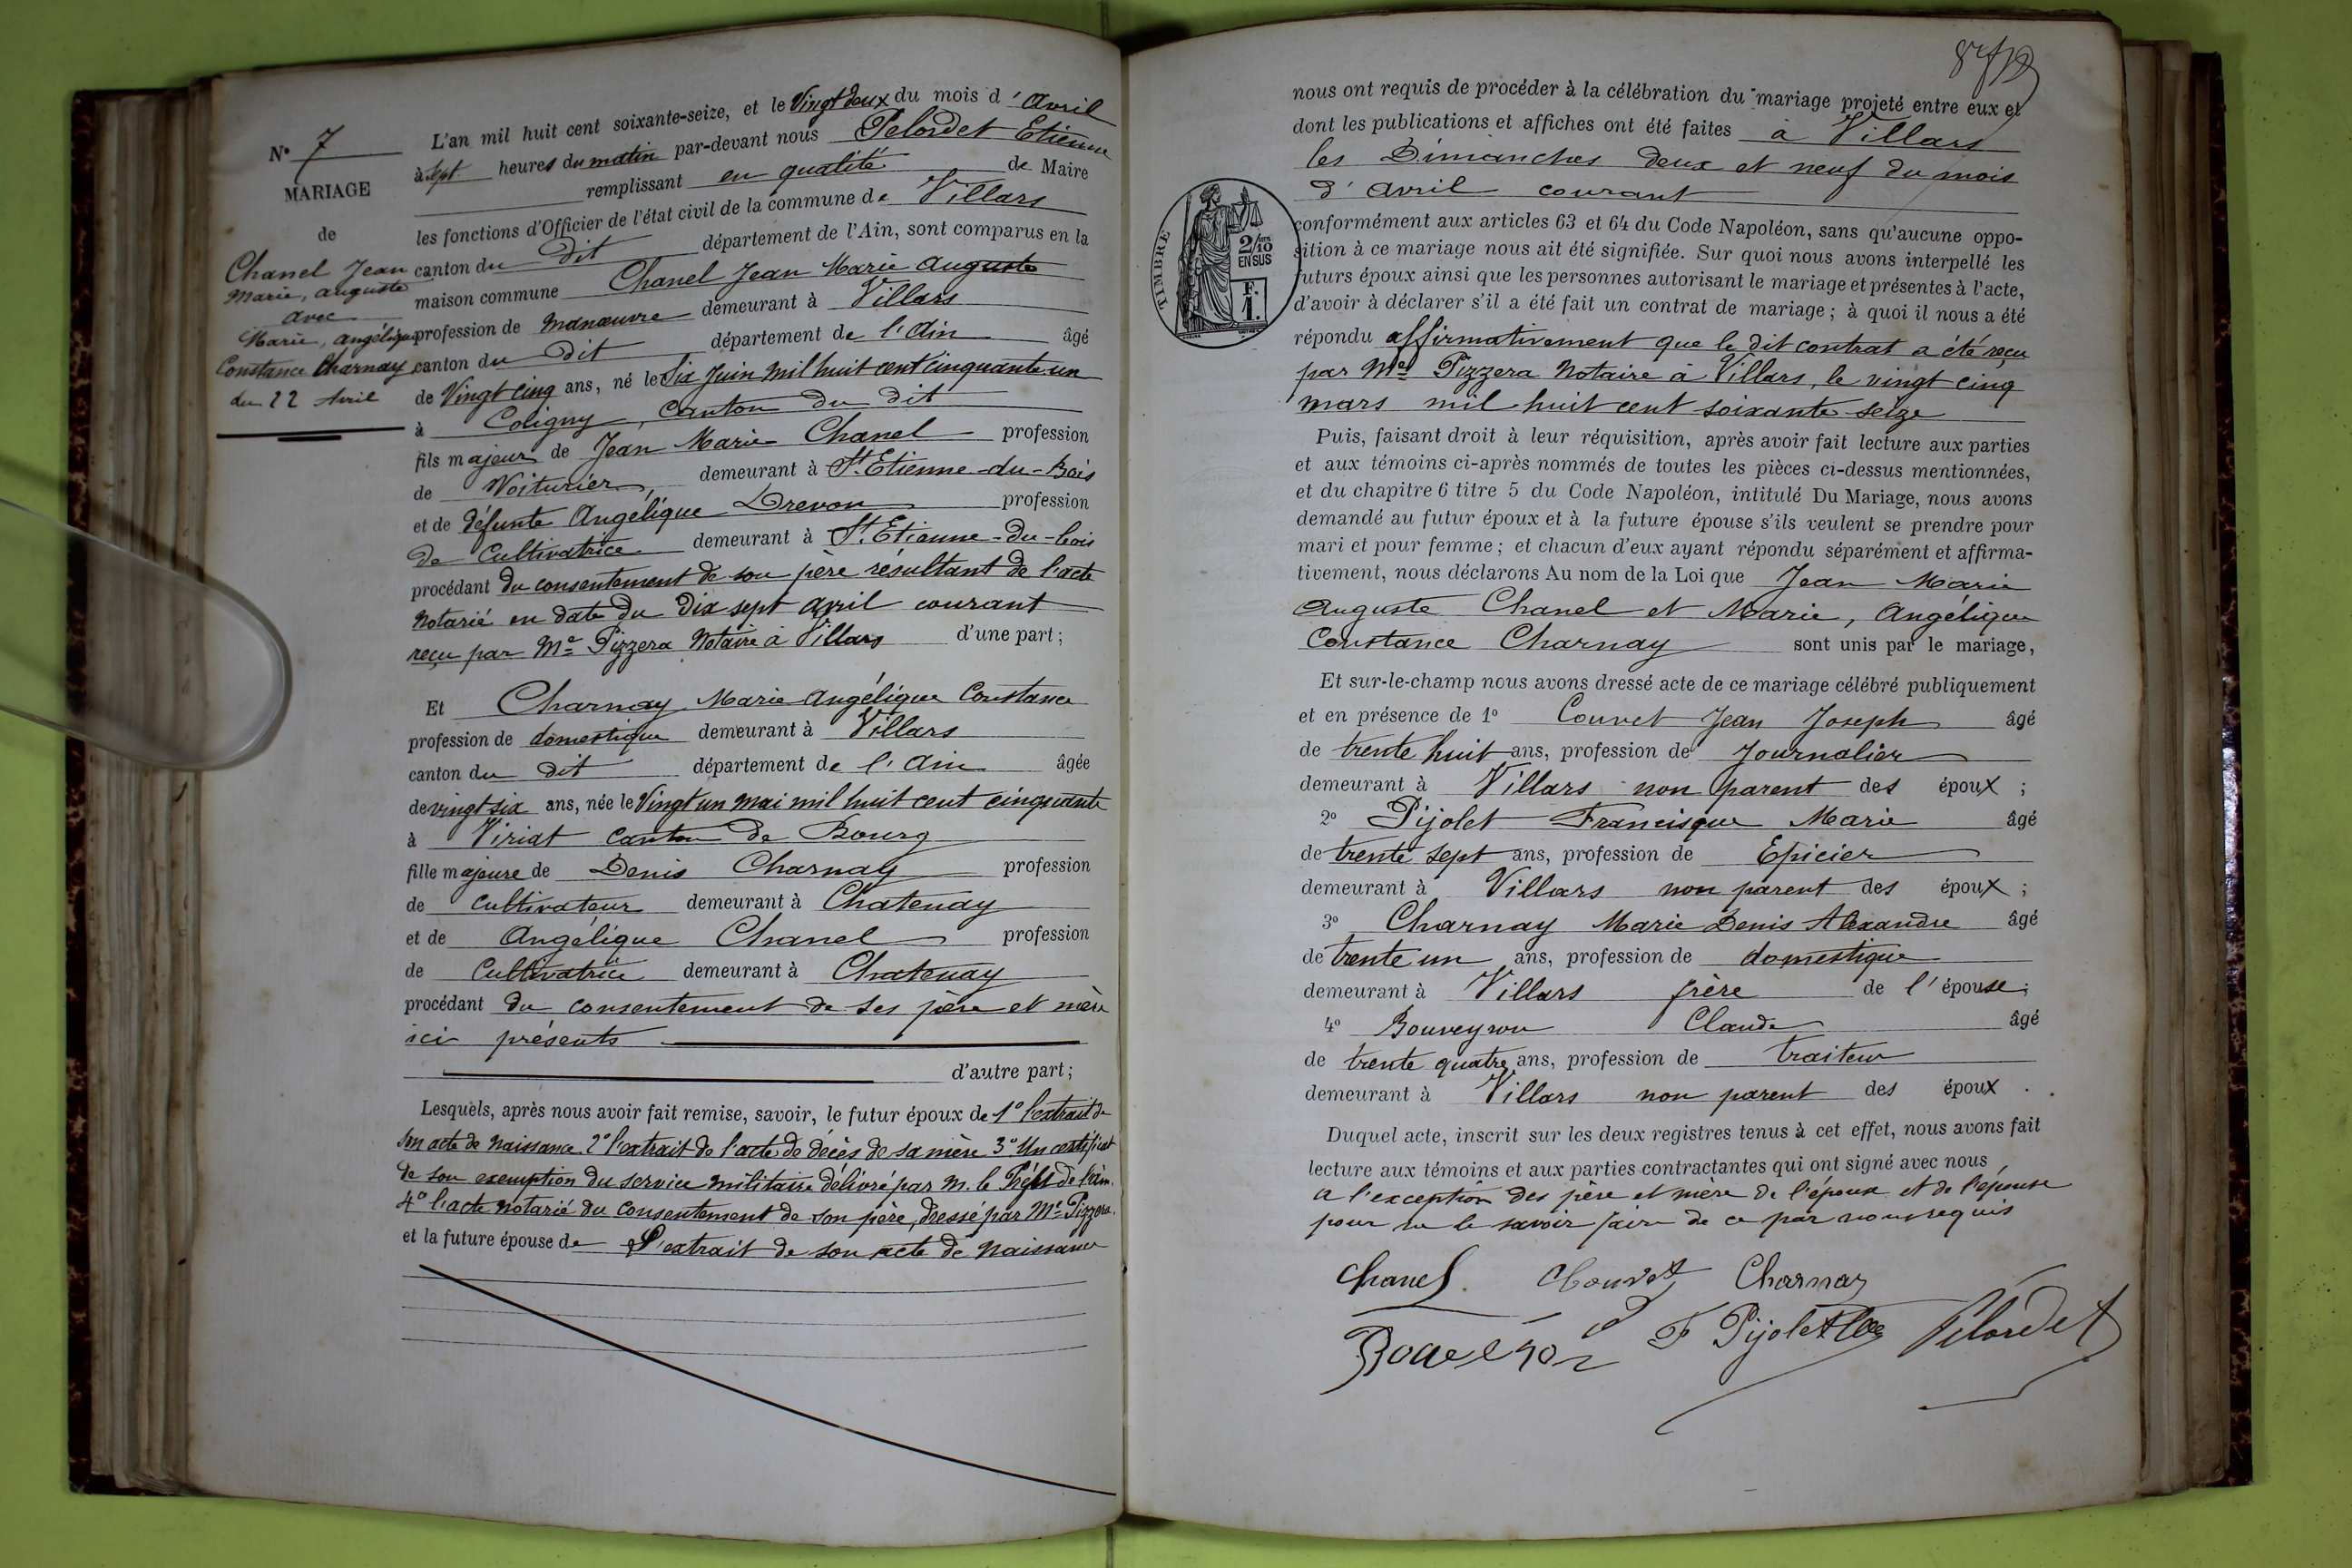 N° 7
MARIAGE
de
Chanel Jean
Marie, auguste
avec
Marie, angélique
Constance Charnay
du 22 Avril
L'an mil huit cent soixante-seize, et le Vingt deux du mois d'Avril
à Sept heures du matin par-devant nous Pelordet Etienne
remplissant en qualité de Maire
les fonctions d'Officier de l'état civil de la commune de Villars
canton du dit département de l'Ain, sont comparus en la
maison commune Chanel Jean Marie Auguste
profession de manœuvre demeurant à Villars
canton du dit département de l'Ain âgé
de Vingt cinq ans, né le Six Juin mil huit cent cinquante-un
à Coligny, canton du dit
fils majeur de Jean Marie Chanel profession
de Voiturier, demeurant à St. Etienne-du-Bois
et de défunte Angélique Drevon profession
de Cultivatrice demeurant à St. Etienne-du-bois
procédant du consentement de son père résultant de l'acte
Notarié en date du Dix sept avril courant
reçu par Me Pizzera Notaire à Villars d'une part ;
Et Charnay Marie Angélique Constance
profession de domestique demeurant à Villars
canton du dit département de l'Ain âgée
de vingt six ans, née le Vingt un mai mil huit cent cinquante
à Viriat canton de Bourg
fille majeure de Denis Charnay profession
de cultivateur demeurant à Chatenay
et de Angélique Chanel profession
de Cultivatrice demeurant à Chatenay
procédant du consentement de ses père et mère
ici présents
d'autre part ;
Lesquels, après nous avoir fait remise, savoir, le futur époux de 1° l'extrait de
son acte de naissance. 2° l'extrait de l'acte de décès de sa mère 3° Un certificat
de son exemption du service militaire délivré par M. le Préfet de l'ain.
4° l'acte notarié du consentement de son père, dressé par Me Pizzera.
et la future épouse de L'extrait de son acte de naissance
nous ont requis de procéder à la célébration du mariage projeté entre eux et
dont les publications et affiches ont été faites à Villars
les Dimanches deux et neuf du mois
d'avril courant
TIMBRE
2/10
EN SUS
F.
1.
conformément aux articles 63 et 64 du Code Napoléon, sans qu'aucune oppo-
sition à ce mariage nous ait été signifiée. Sur quoi nous avons interpellé les
futurs époux ainsi que les personnes autorisant le mariage et présentes à l'acte,
d'avoir à déclarer s'il a été fait un contrat de mariage ; à quoi il nous a été
répondu affirmativement que le dit contrat a été reçu
par Me Pizzera Notaire à Villars, le vingt cinq
mars mil huit cent soixante-seize
Puis, faisant droit à leur réquisition, après avoir fait lecture aux parties
et aux témoins ci-après nommés de toutes les pièces ci-dessus mentionnées,
et du chapitre 6 titre 5 du Code Napoléon, intitulé Du Mariage, nous avons
demandé au futur époux et à la future épouse s'ils veulent se prendre pour
mari et pour femme ; et chacun d'eux ayant répondu séparément et affirma-
tivement, nous déclarons Au nom de la Loi que Jean Marie
Auguste Chanel et Marie, Angélique
Constance Charnay sont unis par le mariage,
Et sur-le-champ nous avons dressé acte de ce mariage célébré publiquement
et en présence de 1° Couvet Jean Joseph âgé
de trente huit ans, profession de Journalier
demeurant à Villars non parent des époux ;
2° Pijolet Francisque Marie âgé
de trente sept ans, profession de Epicier
demeurant à Villars non parent des époux ;
3° Charnay Marie Denis Alexandre âgé
de trente un ans, profession de domestique
demeurant à Villars frère de l'épouse ;
4° Bouveyron Claude âgé
de trente quatre ans, profession de traiteur
demeurant à Villars non parent des époux .
Duquel acte, inscrit sur les deux registres tenus à cet effet, nous avons fait
lecture aux témoins et aux parties contractantes qui ont signé avec nous
à l'exception des père et mère de l'épouse et de l'épouse
pour ne le savoir faire de ce par nous requis
Chanel Couvet Charnay
F Pijolet Pelordet